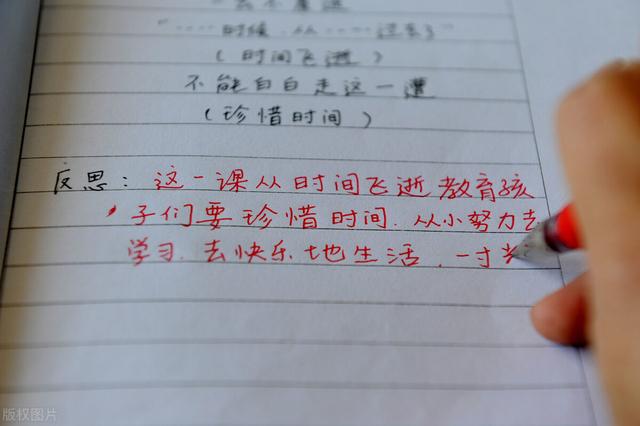 “……时候，从……过去了”
（时间飞逝）
不能白白走这一遭
（珍惜时间）
反思：这一课从时间飞逝教育孩
子们要珍惜时间.从小努力去
学习.去快乐地生活.一寸
版权图片